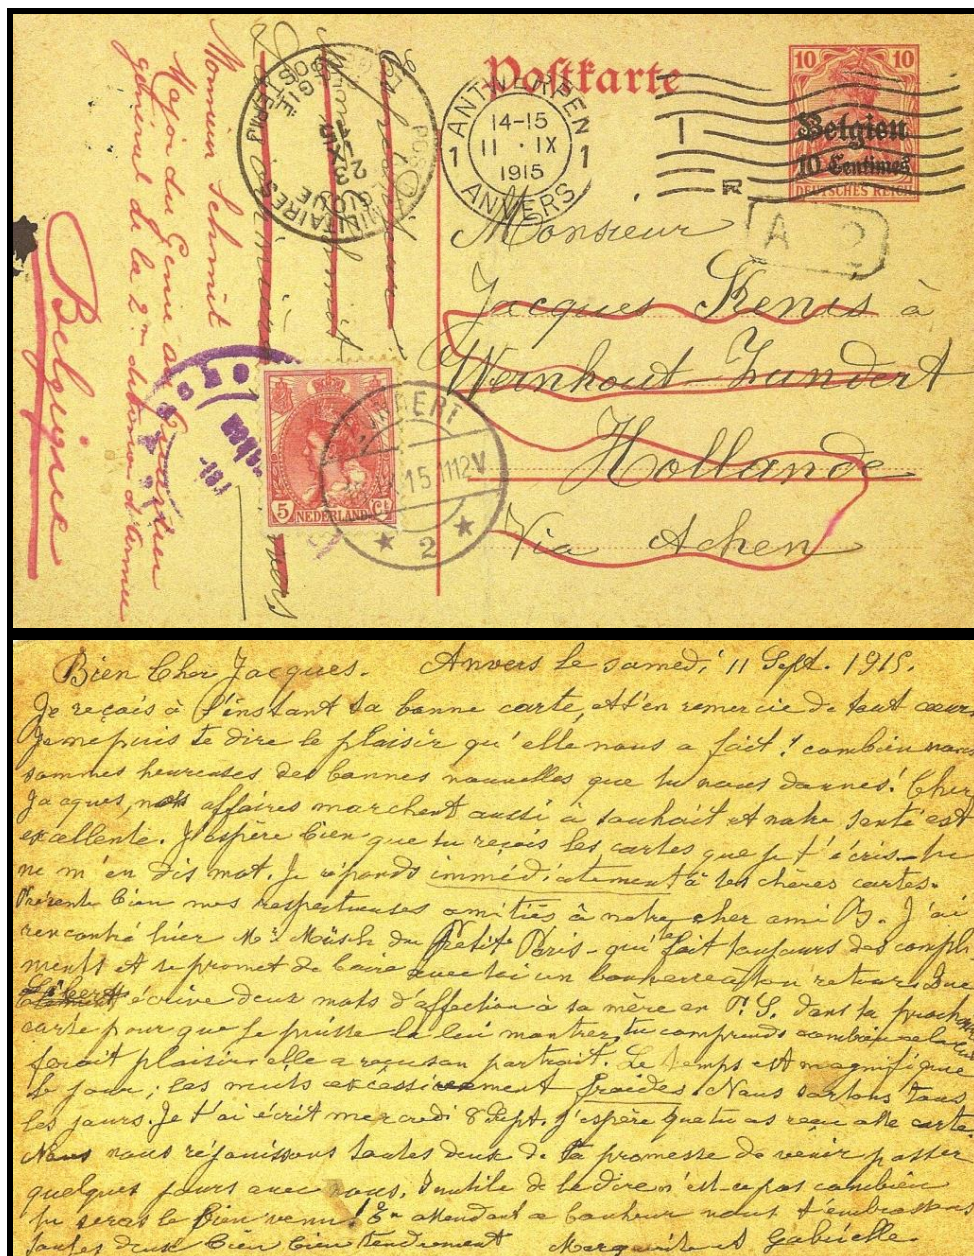 Postkarte
10 10
Belgien
10 Centimes
DEUTSCHES REICH
ANTWERPEN
1 14-15 1
11 · IX
1915
ANVERS
A 2
Monsieur
Jacques Fenis à
Wernhout-Zundert
Hollande
Via Achen
POSTES MILITAIRES
BELGIQUE
Monsieur Schmit
Major du Genie au Quartier
général de la 2me division d'Armée
Belgique
5 NEDERLAND Ct
15 1112V
2
Bien Cher Jacques. Anvers le samedi 11 Sept. 1915.
Je reçois à l'instant ta bonne carte, et t'en remercie de tout cœur.
Je ne puis te dire le plaisir qu'elle nous a fait! combien nous
sommes heureuses des bonnes nouvelles que tu nous donnes! Cher
Jacques, nos affaires marchent aussi à souhait et notre santé est
excellente. J'espère bien que tu reçois les cartes que je t'écris - tu
ne m'en dis mot. Je réponds immédiatement à tes chères cartes.
Présente bien mes respectueuses amitiés à notre cher ami B. J'ai
rencontré hier Mr Müsch du Petit Paris - qui fait toujours des compli-
ments et se promet de boire avec toi un bon verre à ton retour. Que
Libert écrive deux mots d'affection à sa mère en P.S. dans ta prochaine
carte pour que je puisse la lui montrer, tu comprends combien cela lui
ferait plaisir elle a reçu son portrait. Le temps est magnifique
le jour; les nuits excessivement froides. Nous sortons tous
les jours. Je t'ai écrit mercredi 8 Sept. j'espère que tu as reçu cette carte.
Nous nous réjouissons toutes deux de ta promesse de venir passer
quelques jours avec nous. Inutile de te dire n'est-ce pas combien
tu seras le bien venu! En attendant ce bonheur nous t'embrassons
toutes deux bien bien tendrement Marguerite et Gabrielle.